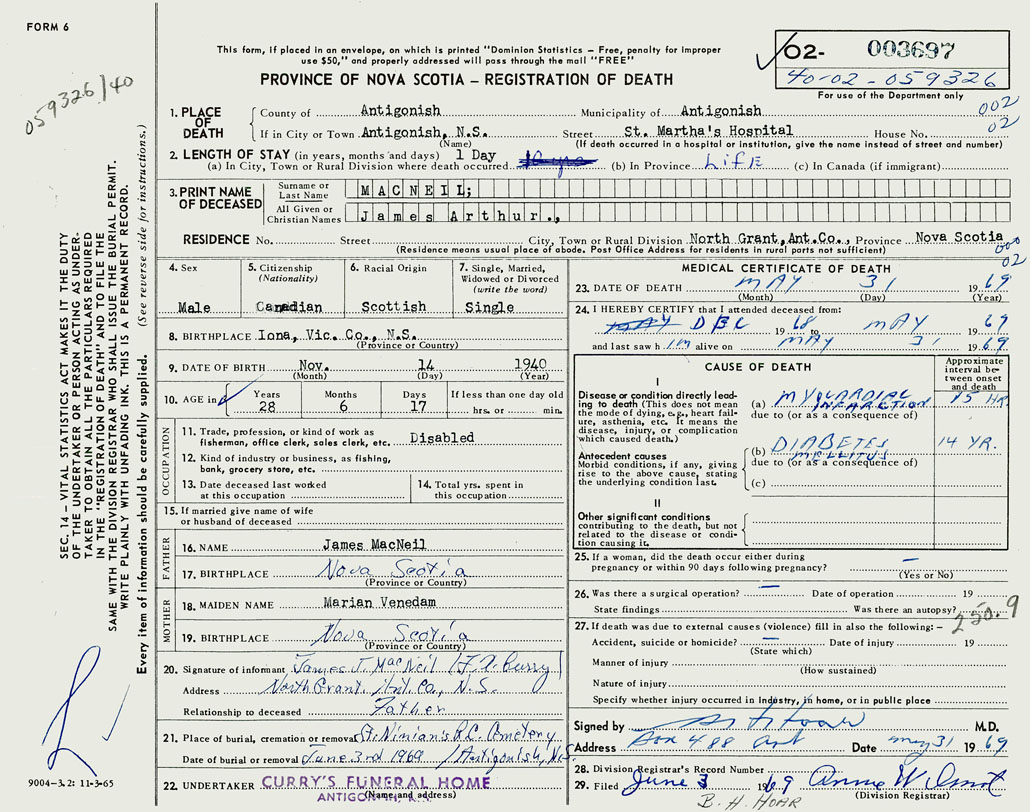 FORM 6
059326/40
This form, if placed in an envelope, on which is printed "Dominion Statistics – Free, penalty for improper
use $50," and properly addressed will pass through the mail "FREE"
PROVINCE OF NOVA SCOTIA – REGISTRATION OF DEATH
02- 003697
40-02-059326
For use of the Department only
002
02
1. PLACE OF DEATH
County of Antigonish Municipality of Antigonish
If in City or Town Antigonish, N.S. Street St. Martha's Hospital House No.
(Name) (If death occurred in a hospital or institution, give the name instead of street and number)
2. LENGTH OF STAY (in years, months and days) 1 Day
(a) In City, Town or Rural Division where death occurred (b) In Province LiFE (c) In Canada (if immigrant)
3. PRINT NAME OF DECEASED
Surname or Last Name MACNEIL;
All Given or Christian Names James Arthur.,
RESIDENCE No. Street City, Town or Rural Division North Grant, Ant.Co., Province Nova Scotia
(Residence means usual place of abode. Post Office Address for residents in rural parts not sufficient)
02
4. Sex
Male
5. Citizenship (Nationality)
Canadian
6. Racial Origin
Scottish
7. Single, Married, Widowed or Divorced (write the word)
Single
8. BIRTHPLACE Iona, Vic. Co., N.S.
(Province or Country)
9. DATE OF BIRTH Nov. 14 1940
(Month) (Day) (Year)
10. AGE in
Years Months Days If less than one day old
28 6 17 hrs. or min.
OCCUPATION
11. Trade, profession, or kind of work as
fisherman, office clerk, sales clerk, etc. Disabled
12. Kind of industry or business, as fishing,
bank, grocery store, etc.
13. Date deceased last worked
at this occupation
14. Total yrs. spent in
this occupation
15. If married give name of wife
or husband of deceased
FATHER
16. NAME James MacNeil
17. BIRTHPLACE Nova Scotia
(Province or Country)
MOTHER
18. MAIDEN NAME Marian Venedam
19. BIRTHPLACE Nova Scotia
(Province or Country)
20. Signature of informant James J. MacNeil
Address North Grant, Ant. Co., N.S.
Relationship to deceased Father
21. Place of burial, cremation or removal St. Ninian's R.C. Cemetery
Date of burial or removal June 3rd 1969 Antigonish, N.S.
22. UNDERTAKER CURRY'S FUNERAL HOME
(Name and address)
MEDICAL CERTIFICATE OF DEATH
23. DATE OF DEATH MAY 31 1969
(Month) (Day) (Year)
24. I HEREBY CERTIFY that I attended deceased from:
DEC 1968 to MAY 1969
and last saw him alive on MAY 31 1969
CAUSE OF DEATH
Approximate interval between onset and death
I
Disease or condition directly leading to death (This does not mean the mode of dying, e.g., heart failure, asthenia, etc. It means the disease, injury, or complication which caused death.)
(a) MYOCARDIAL INFARCTION 15 HR
due to (or as a consequence of)
Antecedent causes
Morbid conditions, if any, giving rise to the above cause, stating the underlying condition last.
(b) DIABETES MELLITUS 14 YR.
due to (or as a consequence of)
(c)
II
Other significant conditions
contributing to the death, but not related to the disease or condition causing it.
25. If a woman, did the death occur either during
pregnancy or within 90 days following pregnancy? –
(Yes or No)
26. Was there a surgical operation? – Date of operation 19
State findings Was there an autopsy?
250.9
27. If death was due to external causes (violence) fill in also the following: –
Accident, suicide or homicide? – Date of injury 19
(State which)
Manner of injury
(How sustained)
Nature of injury
Specify whether injury occurred in industry, in home, or in public place
Signed by M.D.
Address Box 488 Ant Date May 31 1969
28. Division Registrar's Record Number
29. Filed June 3 1969
(Division Registrar)
B. H. HOAR
SEC. 14 – VITAL STATISTICS ACT MAKES IT THE DUTY
OF THE UNDERTAKER OR PERSON ACTING AS UNDER-
TAKER TO OBTAIN ALL THE PARTICULARS REQUIRED
IN THE "REGISTRATION OF DEATH" AND TO FILE THE
SAME WITH THE DIVISION REGISTRAR WHO SHALL ISSUE THE BURIAL PERMIT.
WRITE PLAINLY WITH UNFADING INK. THIS IS A PERMANENT RECORD.
Every item of information should be carefully supplied. (See reverse side for instructions.)
9004-3.2: 11-3-65